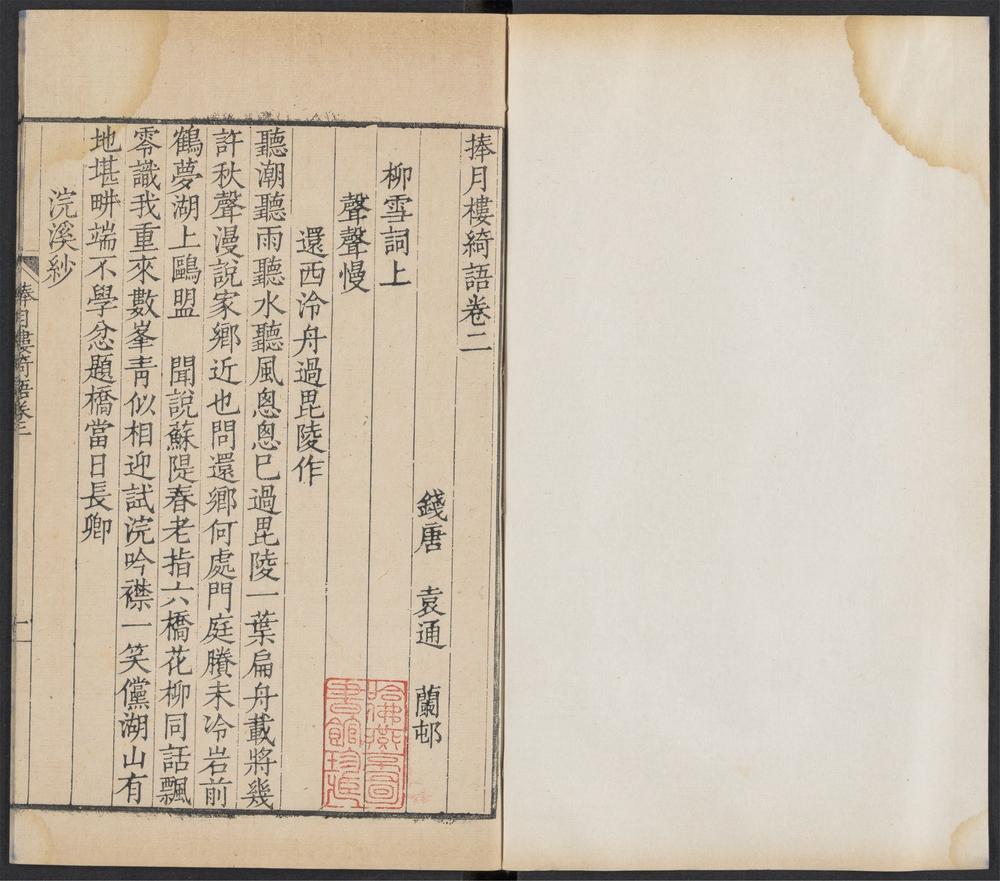 捧月樓綺語卷二
錢唐 袁通 蘭邨
柳雪詞上
聲聲慢
還西泠舟過毘陵作
聽潮聽雨聽水聽風悤悤已過毘陵一葉扁舟載將幾
許秋聲漫說家鄉近也問還鄉何處門庭賸未冷岩前
鶴夢湖上鷗盟 聞說蘇隄春老指六橋花柳同話飄
零識我重來數峯青似相迎試浣吟襟一笑儻湖山有
地堪畊端不學忿題橋當日長卿
浣溪紗
捧月樓綺語卷二
一
哈佛燕京圖
書館珍藏